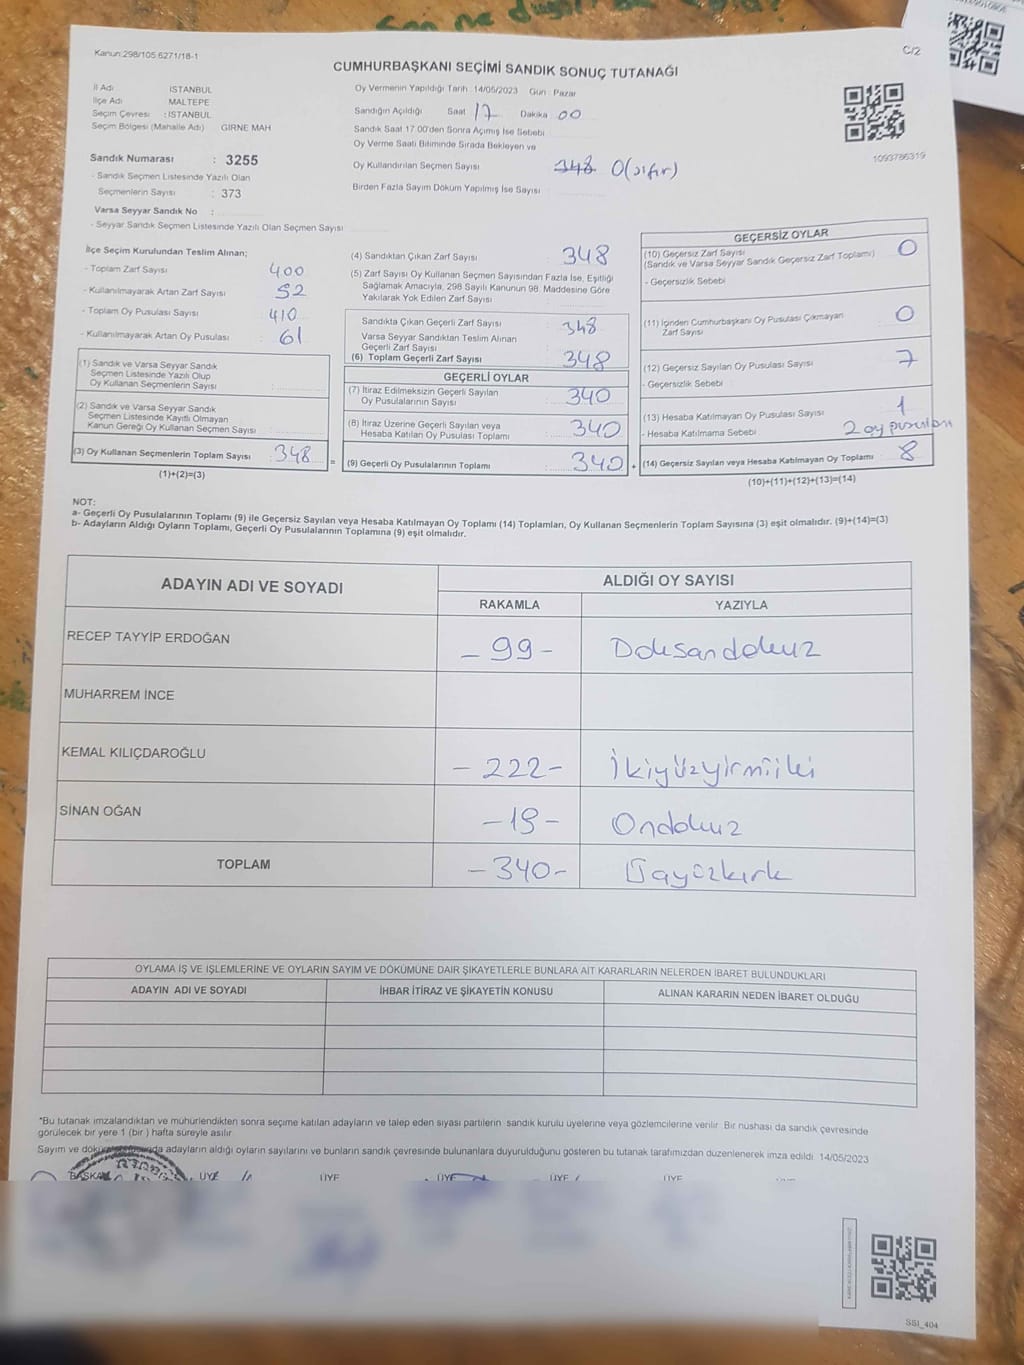 Kanun:298/105.6271/18-1
C/2
CUMHURBAŞKANI SEÇİMİ SANDIK SONUÇ TUTANAĞI
İl Adı İSTANBUL
İlçe Adı MALTEPE
Seçim Çevresi : İSTANBUL
Seçim Bölgesi (Mahalle Adı) GİRNE MAH
Sandık Numarası : 3255
- Sandık Seçmen Listesinde Yazılı Olan
Seçmenlerin Sayısı : 373
Varsa Seyyar Sandık No :
- Seyyar Sandık Seçmen Listesinde Yazılı Olan Seçmen Sayısı
Oy Vermenin Yapıldığı Tarih 14/05/2023 Gün : Pazar
Sandığın Açıldığı Saat 17 Dakika 00
Sandık Saat 17.00'den Sonra Açımış İse Sebebi
Oy Verme Saati Bitiminde Sırada Bekleyen ve
Oy Kullandırılan Seçmen Sayısı 348 0(sıfır)
Birden Fazla Sayım Döküm Yapılmış İse Sayısı
1093786319
İlçe Seçim Kurulundan Teslim Alınan;
- Toplam Zarf Sayısı 400
- Kullanılmayarak Artan Zarf Sayısı 52
- Toplam Oy Pusulası Sayısı 410
- Kullanılmayarak Artan Oy Pusulası 61
(1) Sandık ve Varsa Seyyar Sandık
Seçmen Listesinde Yazılı Olup
Oy Kullanan Seçmenlerin Sayısı :
(2) Sandık ve Varsa Seyyar Sandık
Seçmen Listesinde Kayıtlı Olmayan
Kanun Gereği Oy Kullanan Seçmen Sayısı :
(3) Oy Kullanan Seçmenlerin Toplam Sayısı : 348 =
(1)+(2)=(3)
(4) Sandıktan Çıkan Zarf Sayısı : 348
(5) Zarf Sayısı Oy Kullanan Seçmen Sayısından Fazla İse, Eşitliği
Sağlamak Amacıyla, 298 Sayılı Kanunun 98. Maddesine Göre
Yakılarak Yok Edilen Zarf Sayısı
Sandıkta Çıkan Geçerli Zarf Sayısı : 348
Varsa Seyyar Sandıktan Teslim Alınan
Geçerli Zarf Sayısı
(6) Toplam Geçerli Zarf Sayısı 348
GEÇERLİ OYLAR
(7) İtiraz Edilmeksizin Geçerli Sayılan
Oy Pusulalarının Sayısı : 340
(8) İtiraz Üzerine Geçerli Sayılan veya
Hesaba Katılan Oy Pusulası Toplamı : 340
(9) Geçerli Oy Pusulalarının Toplamı : 340 +
GEÇERSİZ OYLAR
(10) Geçersiz Zarf Sayısı
(Sandık ve Varsa Seyyar Sandık Geçersiz Zarf Toplamı) 0
- Geçersizlik Sebebi
(11) İçinden Cumhurbaşkanı Oy Pusulası Çıkmayan
Zarf Sayısı 0
(12) Geçersiz Sayılan Oy Pusulası Sayısı 7
- Geçersizlik Sebebi
(13) Hesaba Katılmayan Oy Pusulası Sayısı 1
- Hesaba Katılmama Sebebi 2 oy pusulası
(14) Geçersiz Sayılan veya Hesaba Katılmayan Oy Toplamı 8
(10)+(11)+(12)+(13)=(14)
NOT:
a- Geçerli Oy Pusulalarının Toplamı (9) ile Geçersiz Sayılan veya Hesaba Katılmayan Oy Toplamı (14) Toplamları, Oy Kullanan Seçmenlerin Toplam Sayısına (3) eşit olmalıdır. (9)+(14)=(3)
b- Adayların Aldığı Oyların Toplamı, Geçerli Oy Pusulalarının Toplamına (9) eşit olmalıdır.
ADAYIN ADI VE SOYADI ALDIĞI OY SAYISI
RAKAMLA YAZIYLA
RECEP TAYYİP ERDOĞAN - 99 - Doksandokuz
MUHARREM İNCE
KEMAL KILIÇDAROĞLU - 222 - İkiyüzyirmiiki
SİNAN OĞAN - 19 - Ondokuz
TOPLAM - 340 - Üçyüzkırk
OYLAMA İŞ VE İŞLEMLERİNE VE OYLARIN SAYIM VE DÖKÜMÜNE DAİR ŞİKAYETLERLE BUNLARA AİT KARARLARIN NELERDEN İBARET BULUNDUKLARI
ADAYIN ADI VE SOYADI İHBAR İTİRAZ VE ŞİKAYETİN KONUSU ALINAN KARARIN NEDEN İBARET OLDUĞU
*Bu tutanak imzalandıktan ve mühürlendikten sonra seçime katılan adayların ve talep eden siyasi partilerin sandık kurulu üyelerine veya gözlemcilerine verilir. Bir nüshası da sandık çevresinde
görülecek bir yere 1 (bir ) hafta süreyle asılır.
Sayım ve dökümü adayların aldığı oyların sayılarını ve bunların sandık çevresinde bulunanlara duyurulduğunu gösteren bu tutanak tarafımızdan düzenlenerek imza edildi. 14/05/2023
BAŞKAN ÜYE ÜYE ÜYE ÜYE ÜYE
SSI_404